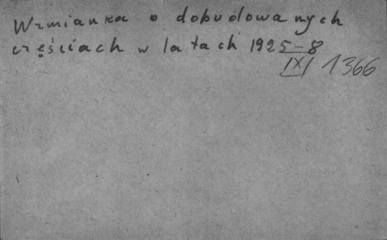 Wzmianka o dobudowanych
częściach w latach 1925-8
IXI 1366